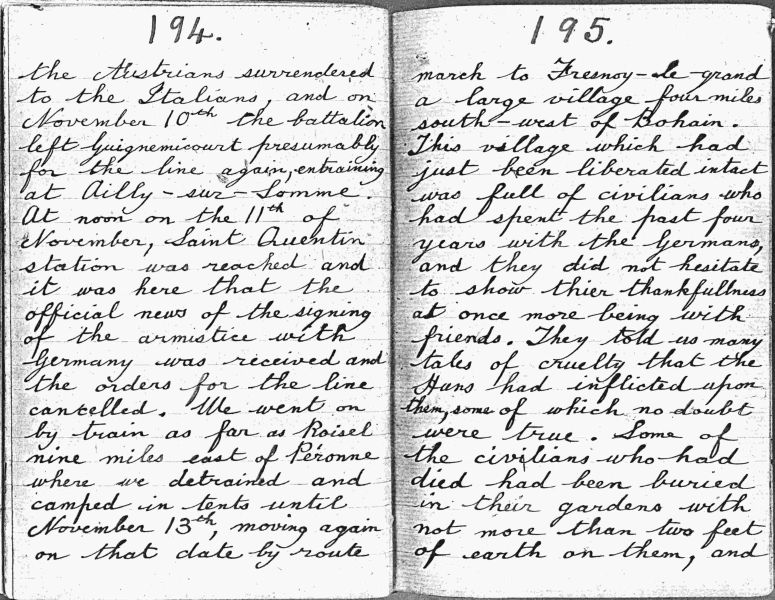 194.
the Austrians surrendered
to the Italians, and on
November 10th the battalion
left Guignemicourt presumably
for the line again, entraining
at Ailly-sur-Somme.
At noon on the 11th of
November, Saint Quentin
station was reached and
it was here that the
official news of the signing
of the armistice with
Germany was received and
the orders for the line
cancelled. We went on
by train as far as Roisel
nine miles east of Péronne
where we detrained and
camped in tents until
November 13th, moving again
on that date by route
195.
march to Fresnoy-le-grand
a large village four miles
south-west of Bohain.
This village which had
just been liberated intact
was full of civilians who
had spent the past four
years with the Germans,
and they did not hesitate
to show thier thankfullness
at once more being with
friends. They told us many
tales of cruelty that the
Huns had inflicted upon
them, some of which no doubt
were true. Some of
the civilians who had
died had been buried
in their gardens with
not more than two feet
of earth on them, and